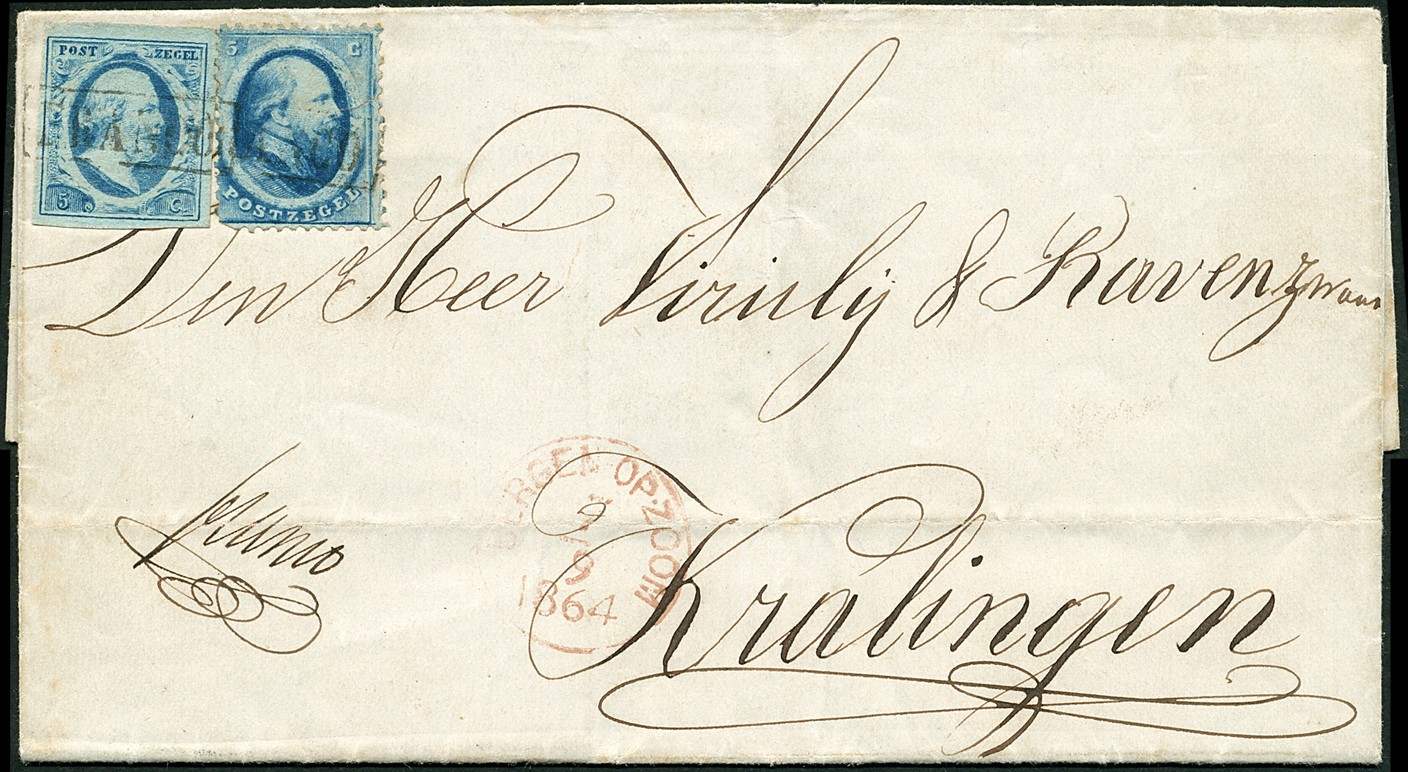 POST ZEGEL
5 C
5 C
POSTZEGEL
FRANCO
Den Heer Viruly & Ravenzwaai
franco
BERGEN-OP-ZOOM
2/9
1864
Kralingen